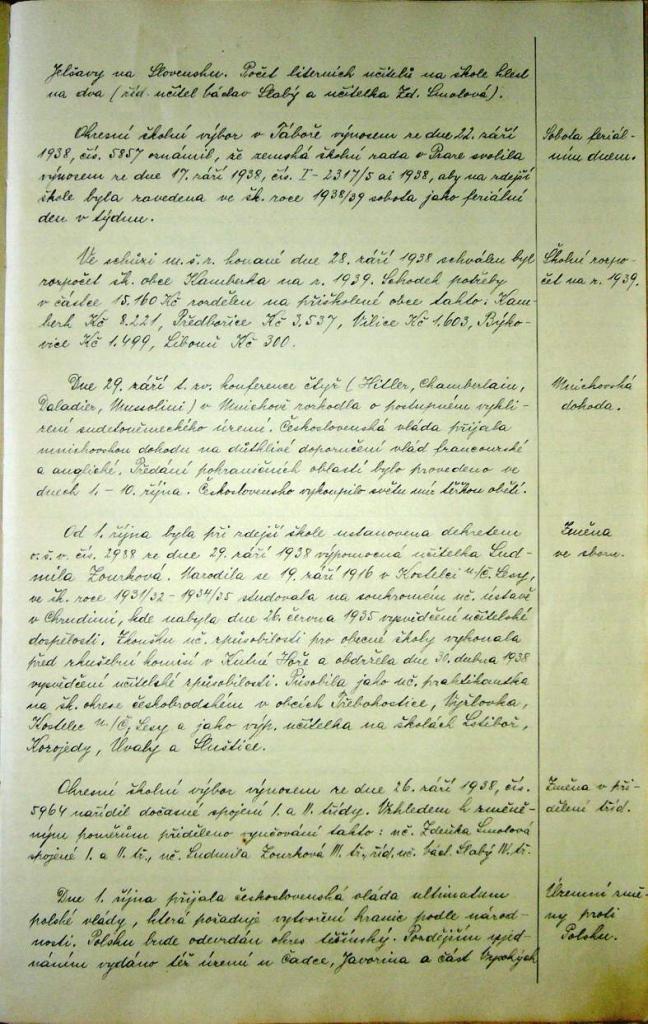 Jelšavy na Slovensku. Počet literních učitelů na škole klesl
na dva (říd. učitel Václav Slabý a učitelka Zd. Smolová).
Okresní školní výbor v Táboře výnosem ze dne 22. září
1938, čís. 5857 oznámil, že zemská školní rada v Praze svolila
výnosem ze dne 17. září 1938, čís. I-2317/5 ai 1938, aby na zdejší
škole byla zavedena ve šk. roce 1938/39 sobota jako feriální
den v týdnu.
Sobota feriál-
ním dnem.
Ve schůzi m. š. r. konané dne 28. září 1938 schválen byl
rozpočet šk. obce Kamberka na r. 1939. Schodek potřeby
v částce 15.160 Kč rozdělen na přiškolené obce takto: Kam-
berk Kč 8.221, Předbořice Kč 3.537, Vilice Kč 1.603, Býko-
vice Kč 1.499, Libouň Kč 300.
Školní rozpo-
čet na r. 1939.
Dne 29. září t. zv. konference čtyř (Hitler, Chamberlain,
Daladier, Mussolini) v Mnichově rozhodla o postupném vykli-
zení sudetoněmeckého území. Československá vláda přijala
mnichovskou dohodu na důtklivé doporučení vlád francouzské
a anglické. Předání pohraničních oblastí bylo provedeno ve
dnech 1. - 10. října. Československo vykoupilo světu mír těžkou obětí.
Mnichovská
dohoda.
Od 1. října byla při zdejší škole ustanovena dekretem
o. š. v. čís. 2988 ze dne 29. září 1938 výpomocná učitelka Lud-
mila Zourková. Narodila se 19. září 1916 v Kostelci n/Č. Lesy,
ve šk. roce 1931/32 - 1934/35 studovala na soukromém uč. ústavě
v Chrudimi, kde nabyla dne 26. června 1935 vysvědčení učitelské
dospělosti. Zkoušku uč. způsobilosti pro obecné školy vykonala
před zkušební komisí v Kutné Hoře a obdržela dne 30. dubna 1938
vysvědčení učitelské způsobilosti. Působila jako uč. praktikantka
na šk. okrese českobrodském v obcích Třebohostice, Vyžlovka,
Kostelec n/Č. Lesy a jako výp. učitelka na školách Lstiboř,
Korojedy, Úvaly a Sluštice.
Změna
ve sboru.
Okresní školní výbor výnosem ze dne 26. září 1938, čís.
5964 nařídil dočasné spojení I. a II. třídy. Vzhledem k změně-
ným poměrům přiděleno vyučování takto: uč. Zdeňka Smolová
spojené I. a II. tř., uč. Ludmila Zourková III. tř., říd. uč. Václ. Slabý IV. tř.
Změna v při-
dělení tříd.
Dne 1. října přijala československá vláda ultimatum
polské vlády, která požaduje vytvoření hranic podle národ-
nosti. Polsku bude odevzdán okres těšínský. Pozdějším vyjed-
náním vydáno též území u Čadce, Javorina a část Vysokých
Územní změ-
ny proti
Polsku.